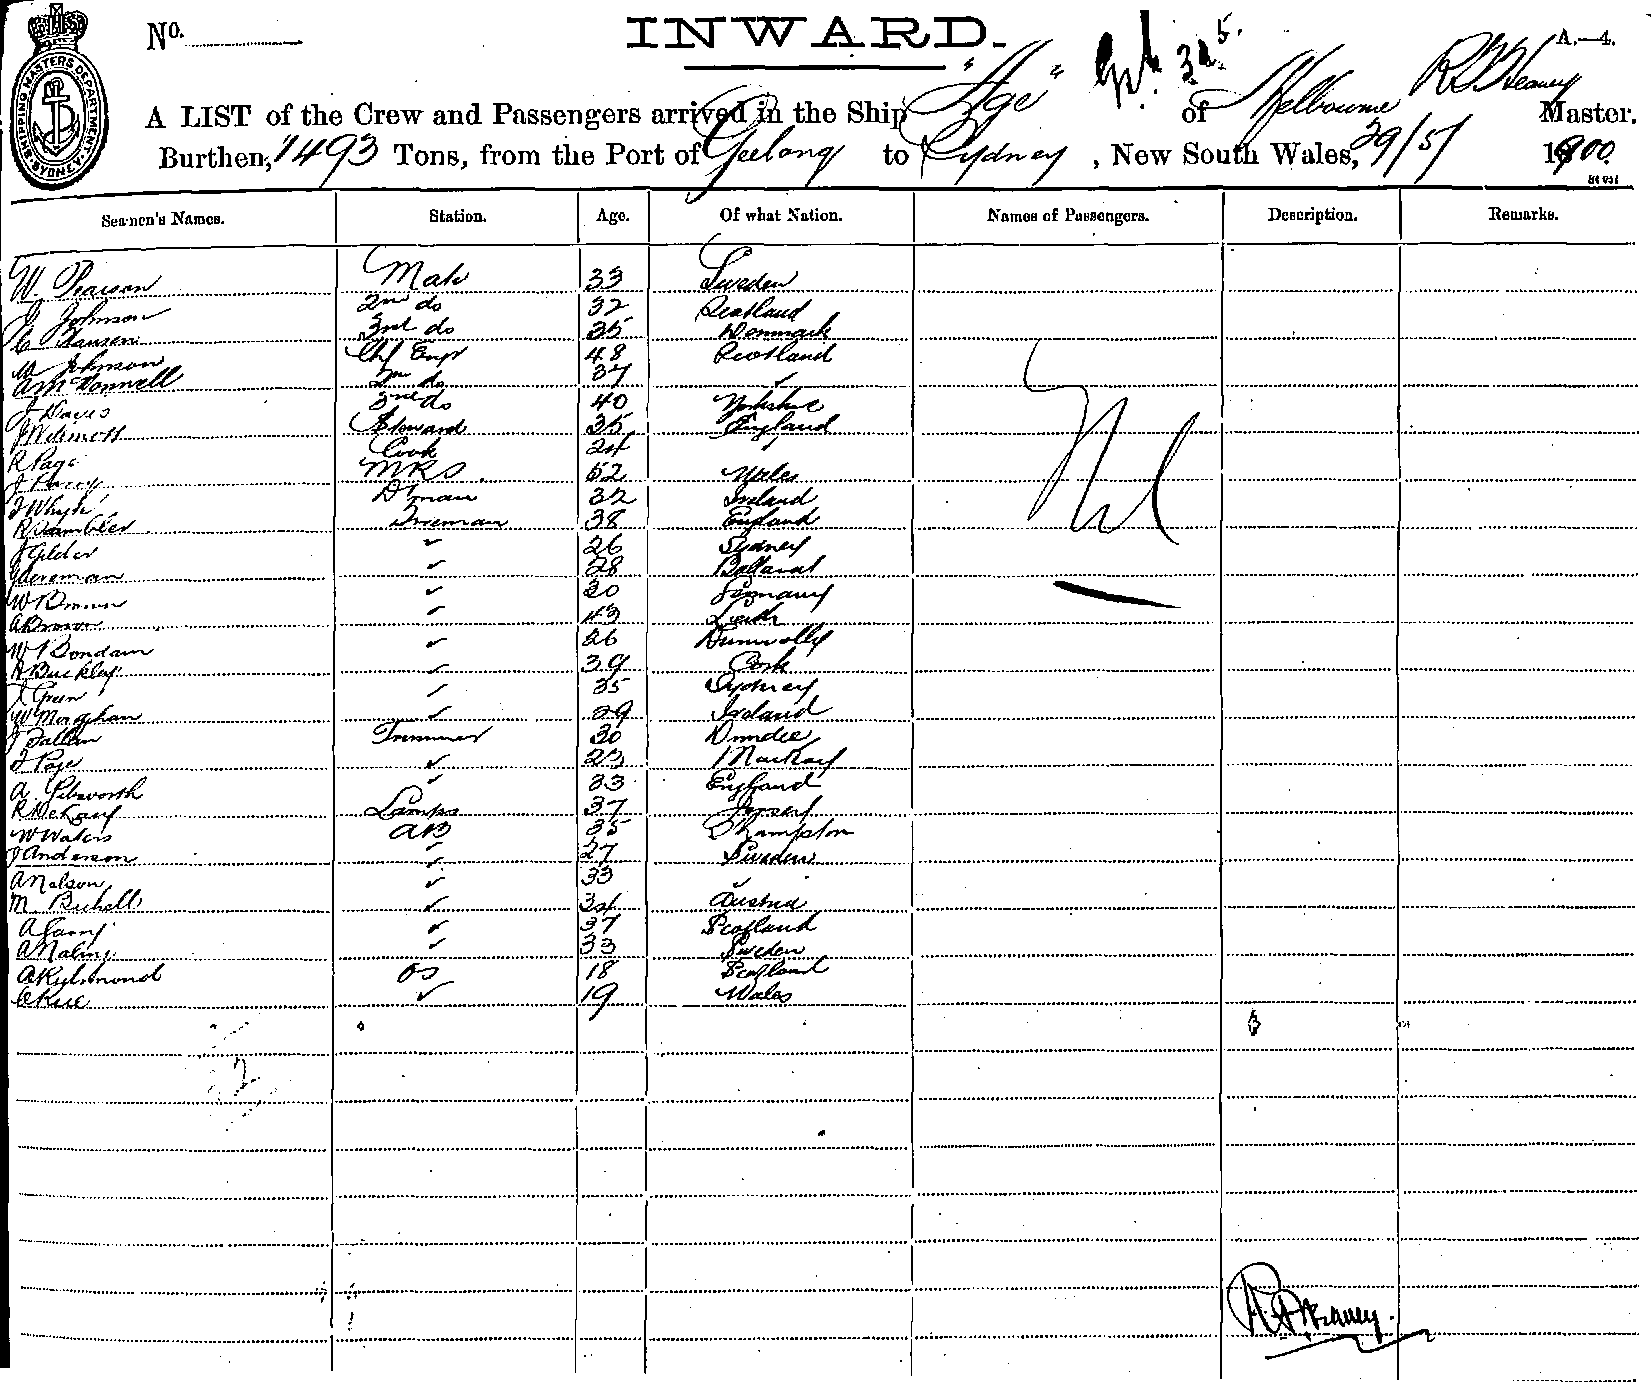 No.
INWARD.
A.—4.
SHIPPING MASTERS DEPARTMENT
SYDNEY
A LIST of the Crew and Passengers arrived in the Ship "Age" of Melbourne Master.
Burthen, 1493 Tons, from the Port of Geelong to Sydney, New South Wales, 29/5/ 1900
Seamen's Names. Station. Age. Of what Nation. Names of Passengers. Description. Remarks.
W Pearson Mate 33 Sweden
J Johnson 2nd do 32 Scotland
C Hansen 3rd do 35 Denmark
W Johnson Chf Engr 48 Scotland
A McDonnell 2nd do 37 ✓
J Davis 3rd do 40 Yorkshire
J Wilmott Steward 35 England
R Page Cook 24
J Parry MRS 52 Wales
J Whyte D'man 32 Ireland
R Fireman 38 England
J Gilder ✓ 26 Sydney
✓ 28 Ballarat
W Brown ✓ 20 Germany
A Brown ✓ 43 Leith
W Bondam ✓ 26 Dunnolly
Buckley ✓ 39 Cork
J Green ✓ 35 Sydney
W Monaghan ✓ 29 Ireland
J Fallon Trimmer 30 Dundee
J Page ✓ 23 Mackay
A ✓ 33 England
R Lamps 37 Jersey
W Waters AB 35 S'hampton
J Anderson ✓ 27 Sweden
A Nelson ✓ 33 ✓
M ✓ 34 Austria
A ✓ 37 Scotland
A Malmj ✓ 33 Sweden
A Richmond OS 18 Scotland
C Rue ✓ 19 Wales
Nil
2